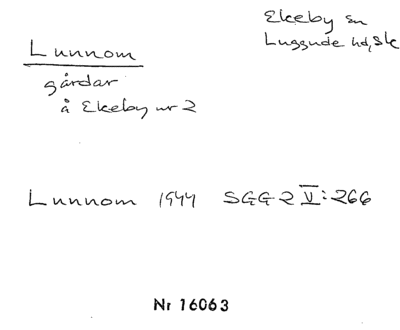 Lunnom
gårdar
å Ekeby nr 2
Ekeby sn
Luggude hd, Sk
Lunnom 1944 SGG 2 V:266
Nr 16063